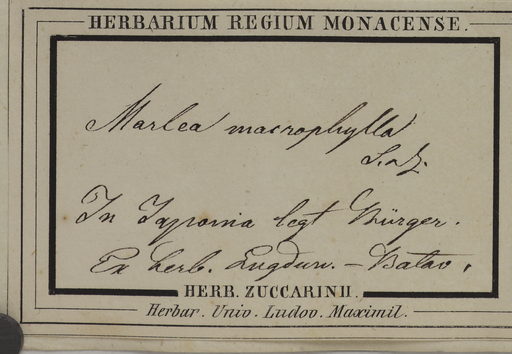 HERBARIUM REGIUM MONACENSE.
Marlea macrophylla
S. & Z.
In Japonia legt Bürger.
Ex herb. Lugdun. - Batav.
HERB. ZUCCARINII.
Herbar. Univ. Ludov. Maximil.